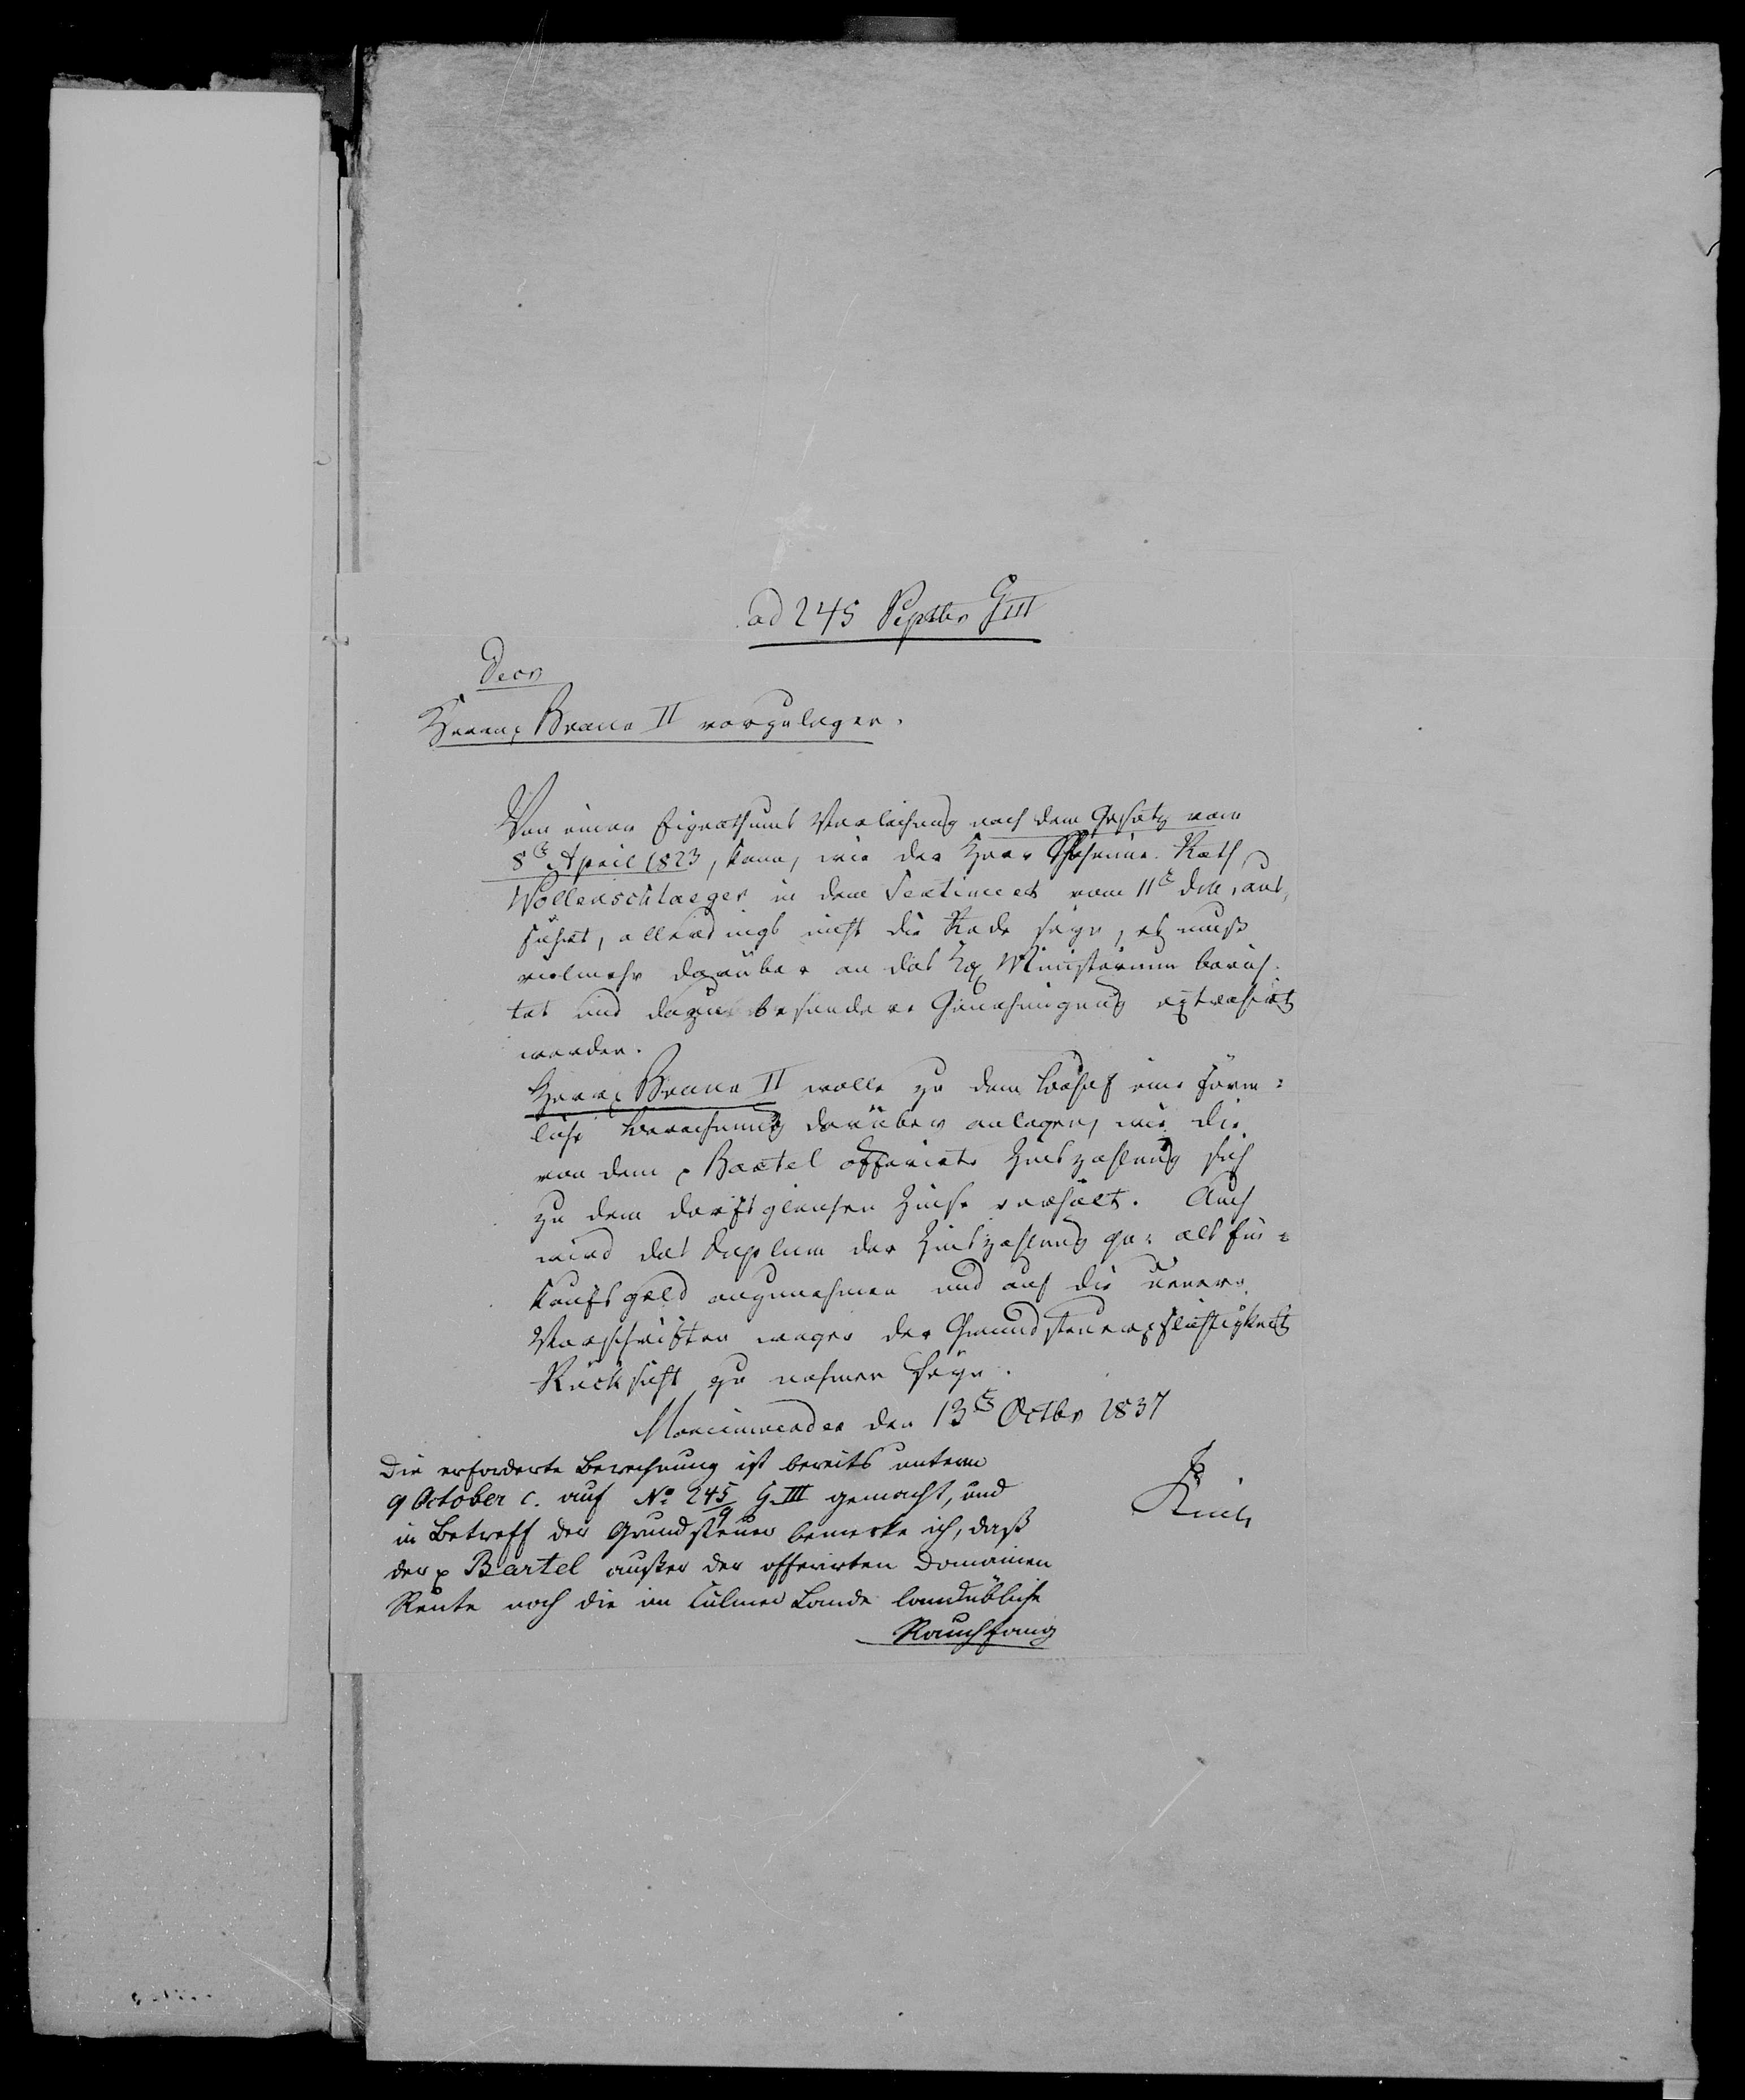 ad 245 Septbr G III
Decr
Herrn p Braun II vorzulegen.
Von einer Eigenthums Verleihung nach dem Gesetz vom
8t April 1823, kann, wie der Herr Geheime Rath
Wollenschlaeger in dem Sentiment vom 11t d M, aus-
führt, allerdings nicht die Rede seyn, es muß
vielmehr darüber an das Kg Ministerium berich-
tet und dazu besondere Genehmigung extrahirt
werden.
Herr p Braun II wolle zu dem Behuf eine förm=
liche Berechnung darüber anlegen, wie die
von dem p Bartel offerirte Zinszahlung sich
zu dem dorfsgleichen Zinse verhält. Auch
wird das Duplum der Zinszahlung als Ein=
kaufsgeld anzunehmen und auf die neuern
Vorschriften wegen der Grundsteuerpflichtigkeit
Rücksicht zu nehmen seyn.
Marienwerder den 13t Octbr 1837
Die erforderte Berechnung ist bereits unterm
9 October c. auf No 245/9 G. III gemacht, und
in Betreff der Grundsteuer bemerke ich, daß
der p Bartel außer der offerirten Domainen
Rente noch die im Culmer Lande landübliche
Rauchfang